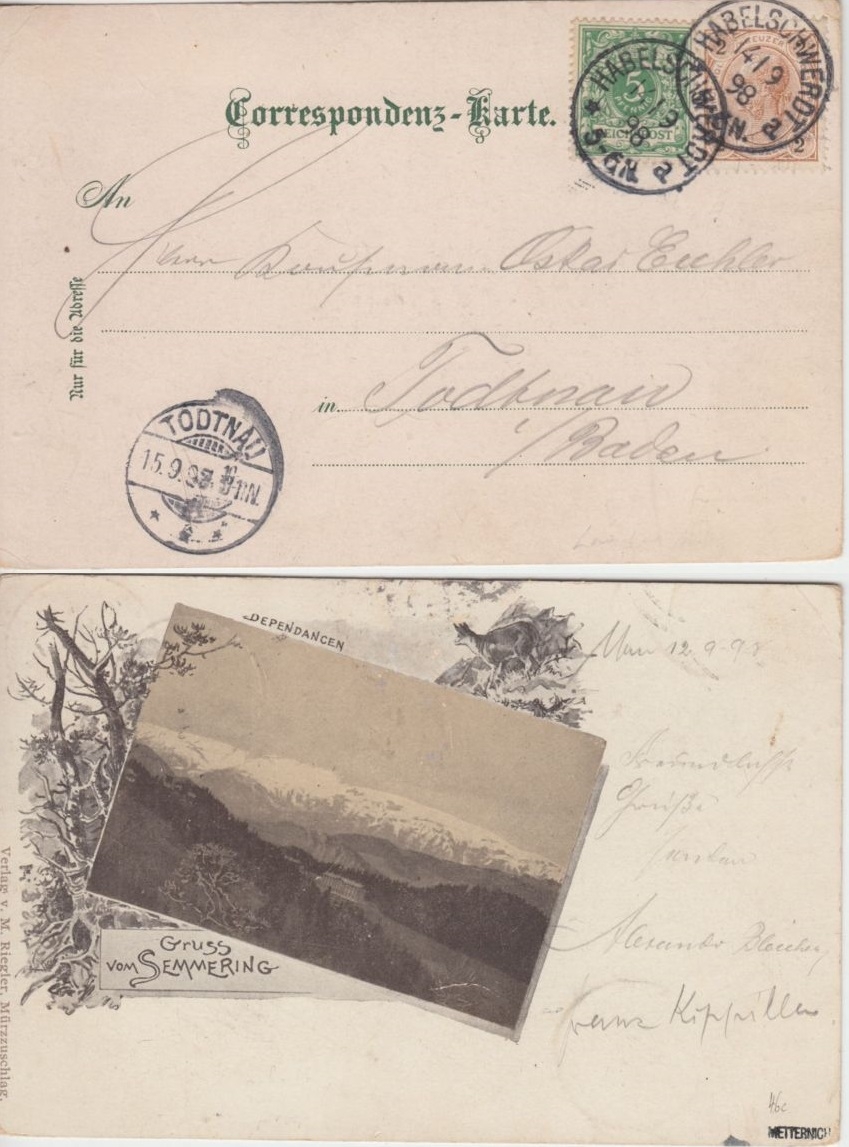 Correspondenz-Karte.
5
REICHSPOST
KREUZER
2
2
HABELSCHWERDT
14/9
98
N.
* HABELSCHWERDT
/9
98
5-6N.
An
Herr Kaufmann Oskar Eichler
Nur für die Adresse
in Todtnau
i/Baden
TODTNAU
15.9.98.
N.
DEPENDANCEN
12.9.98
Freundlichste
Grüße
Alexander Bleicher
Franz
Gruss
vom Semmering
Verlag v. M. Riegler, Mürzzuschlag.
46c
METTERNICH